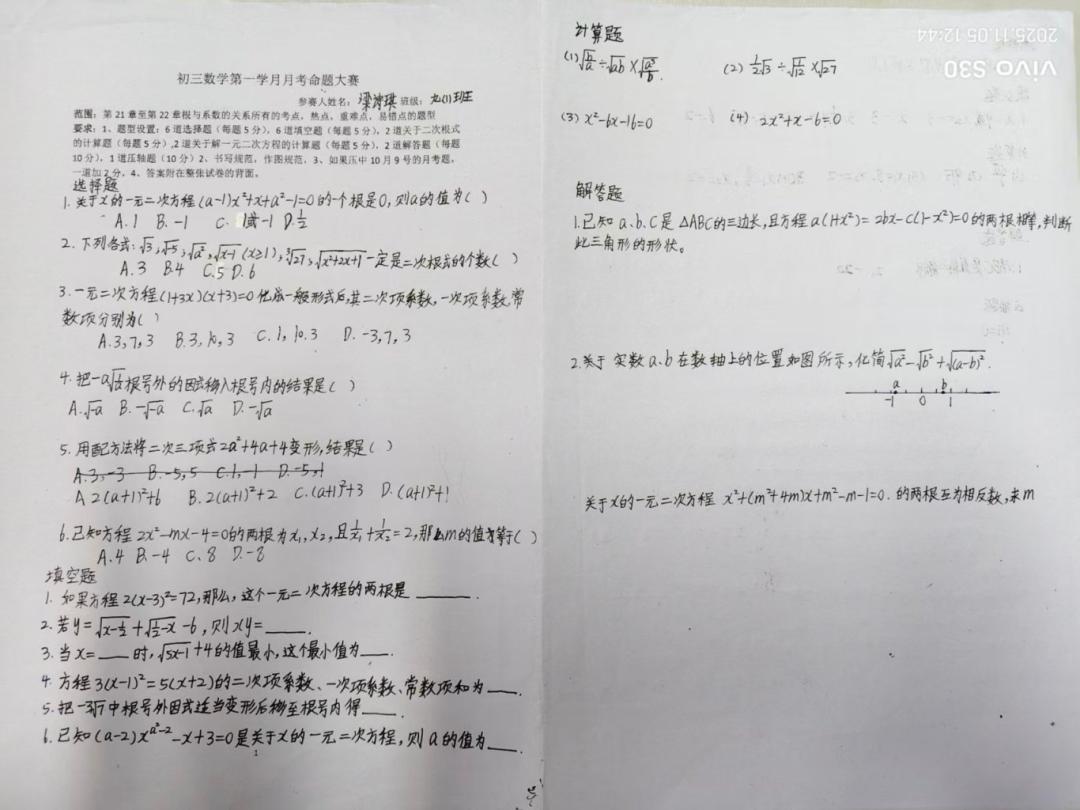 初三数学第一学月月考命题大赛
参赛人姓名：梁诗琪 班级：九(1)班
范围：第21章至第22章根与系数的关系所有的考点，热点，重难点，易错点的题型
要求：1、题型设置：6道选择题（每题5分），6道填空题（每题5分），2道关于二次根式
的计算题（每题5分），2道关于解一元二次方程的计算题（每题5分），2道解答题（每题
10分），1道压轴题（10分）2、书写规范，作图规范，3、如果压中10月9号的月考题，
一道加2分，4、答案附在整张试卷的背面。
选择题
1.关于x的一元二次方程(a-1)x²+x+a²-1=0的一个根是0,则a的值为( )
A.1 B.-1 C.1或-1 D.½
2.下列各式:√3,√5,√a²,√x-1 (x≥1),∛27,√x²+2x+1一定是二次根式的个数( )
A.3 B.4 C.5 D.6
3.一元二次方程(1+3x)(x+3)=0化成一般形式后,其二次项系数,一次项系数,常
数项分别为( )
A.3,7,3 B.3,10,3 C.1,10.3 D.-3,7,3
4.把-a√1/a根号外的因式移入根号内的结果是( )
A.√-a B.-√-a C.√a D.-√a
5.用配方法将二次三项式2a²+4a+4变形,结果是( )
A.3,-3 B.-5,5 C.1,-1 D.-5,1
A 2(a+1)²+6 B.2(a+1)²+2 C.(a+1)²+3 D.(a+1)²+1
6.已知方程2x²-mx-4=0的两根为x₁,x₂,且1/x₁+1/x₂=2,那么m的值等于( )
A.4 B.-4 C.8 D.-8
填空题
1.如果方程2(x-3)²=72,那么,这个一元二次方程的两根是______.
2.若y=√x-½+√½-x-6,则xy=____.
3.当x=___时,√5x-1+4的值最小,这个最小值为___.
4.方程3(x-1)²=5(x+2)的二次项系数、一次项系数、常数项和为___.
5.把-3√7中根号外因式适当变形后移至根号内得____.
6.已知(a-2)x^a²-2-x+3=0是关于x的一元二次方程,则a的值为___.
1
计算题
(1)√b/a÷√ab×√a³/b (2)½√3÷√1/12×√27
(3)x²-6x-16=0 (4)2x²+x-6=0
解答题
1.已知a、b、c是△ABC的三边长,且方程a(1+x²)=2bx-c(1-x²)=0的两根相等,判断
此三角形的形状。
2.关于实数a、b在数轴上的位置如图所示,化简√a²-√b²+√(a-b)².
a b
-1 0 1
关于x的一元二次方程 x²+(m²+4m)x+m²-m-1=0.的两根互为相反数,求m
2025.11.05 12:44
vivo S30